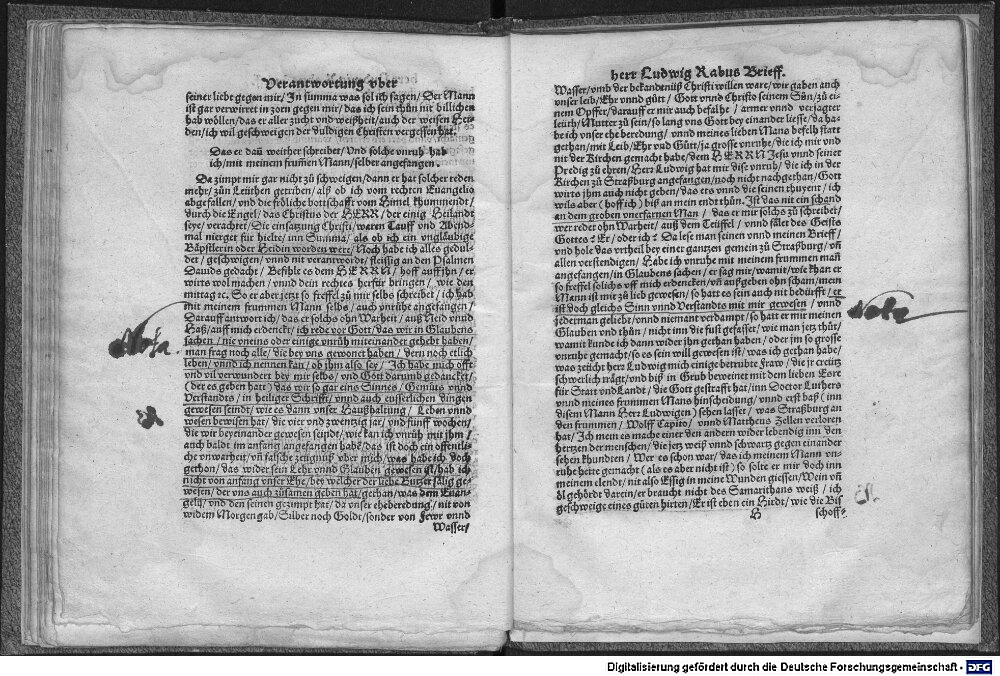 Verantwortung vber
seiner liebe gegen mir/ In summa was sol ich sagen/ Der Mann
ist gar verwirret in zorn gegen mir/ das ich sein thůn nit billichen
hab wöllen/ das er aller zucht und weißheit/ auch der weisen Hei-
den/ ich wil geschweigen der duldigen Christen vergessen hat.
Das er daũ weither schreibet/ Und solche vnruh hab
ich/ mit meinem frum̃en Mann/ selber angefangen.
Da zimpt mir gar nicht zů schweigen/ dann er hat solcher reden
mehr/ zůn Leüthen getriben/ alß ob ich vom rechten Euangelio
abgefallen/ und die fröliche bottschafft vom Himel khummendt/
durch die Engel/ das Christus der HERR/ der einig Heilandt
seye/ verachtet/ Die einsatzung Christi/ waren Tauff vnd Abend-
mal nierget für hielte/ inn Summa/ als ob ich ein vngläubige
Bäpstlerin oder Heidin worden were/ Noch habe ich alles gedul-
det/ geschwigen/ vnnd nit verantwordt/ fleissig an den Psalmen
Dauids gedacht/ Befihle es dem HERRN/ hoff auff jhn/ er
wirts wol machen/ vnnd dein rechtes herfür bringen/ wie den
mittag ꝛc. So er aber jetzt so freffel zů mir selbs schreibet/ ich hab
mit meinem frummen Mann selbs/ auch vnrühe angefangen/
Darauff antwort ich/ das er solchs ohn Warheit/ auß Neid vnd
Haß/ auff mich erdenckt/ ich rede vor Gott/ das wir in Glaubens
sachen/ nie vneins oder einige vnrüh miteinander gehebt haben/
man frag noch alle/ die bey vns gewonet haben/ deren noch etlich
leben/ vnnd ich nennen kan/ ob jhm also sey/ Ich habe mich offt
vnd vil verwundert bey mir selbs/ vnd Gott darumb gedanckt/
(der es geben hatt) das wir so gar eins Sinnes/ Gemüts vnnd
Verstandts/ in heiliger Schrifft/ vnnd auch eusserlichen dingen
gewesen seindt/ wie es dann vnser Haußhaltung/ Leben vnnd
wesen bewisen hat/ die vier vnd zwentzig jar/ vnd fünff wochen/
die wir beyeinander gewesen seindt/ wie kan ich vnrüh mit jhm/
auch baldt im anfang angefangen habẽ/ das ist doch ein offentli-
che vnwarheit/ vñ falsche zeügnuß vber mich/ was habe ich doch
gethon/ das wider sein Lehr vnnd Glauben gewesen ist/ hab ich
nicht von anfang vnser Ehe/ bey welcher der liebe Butzer sälig ge-
wesen/ der vns auch zůsamen geben hat/ gethan/ was dem Euan-
gelij/ vnd den seinen gezimpt hat/ da vnser eheberedung/ nit von
widem Morgengab/ Silber noch Goldt/ sonder von Fewr vnnd
Wasser/
Nota.
herr Ludwig Rabus Brieff.
Wasser/ vmb der bekandtnüß Christi willen ware/ wir gaben auch
vnser leib/ Ehr vnnd gůtt/ Gott vnnd Christo seinem Sůn/ zů ei-
nem Opffer/ darauff er mir auch befalhe/ armer vnnd verjagter
leüth/ Mutter zů sein/ so lang vns Gott bey einander liesse/ da ha-
be ich vnser eheberedung/ vnnd meines lieben Mans befelh statt
gethan/ mit Leib/ Ehr vnd Gůtt/ ja grosse vnruhe/ die ich mir vnd
nit der Kirchen gemacht habe/ dem HERRN Jesu vnnd seiner
Predig zů ehren/ Herr Ludwig hat mir dise vnruh/ die ich in der
Kirchen zů Straßburg angefangen/ noch nicht nachgethan/ Gott
wirts jhm auch nicht geben/ das ers vnnd die seinen thuyent/ ich
wils aber (hoff ich) biß an mein endt thůn. Ist das nit ein schand
an dem groben vnerfarnen Man/ das er mir solchs zů schreibet/
wer redet ohn Warheit/ auß dem Teüffel/ vnnd fälet des Geists
Gottes? Er/ oder ich? Da lese man seinen vnnd meinen Brieff/
vnd hole das vrtheil bey einer gantzen gemein zů Straßburg/ vñ
allen verstendigen/ Habe ich vnruhe mit meinem frummen mañ
angefangen/ in Glaubens sachen/ er sag mir/ wamit/ wie khan er
so freffel solichs vff mich erdencken/ vñ außgeben ohn scham/ mein
Mann ist mir zů lieb gewesen/ so hatt es sein auch nit bedürfft/ er
ist doch gleichs Sinn vnnd Verstandts mit mir gewesen/ vnnd
jederman geliebt/ vnnd niemant verdampt/ so hatt er mit meinen
Glauben vnd thůn/ nicht inn die fůß gefasset/ wie man jetz thůt/
wamit kunde ich dann wider jhn gethan haben/ oder jm so grosse
vnruhe gemacht/ so es sein will gewesen ist/ was ich gethan habe/
was zeücht herr Ludwig mich einige betrübte Fraw/ die jr creütz
schwerlich trägt/ vnd biß in Grub beweinet mit dem lieben Esre
für Statt vnd Landt/ die Gott gestrafft hat/ inn Doctor Luthers
vnnd meines frummen Mans hinscheidung/ vnnd erst baß (inn
disem Mann Herr Ludwigen) sehen lasset/ was Straßburg an
den frummen/ Wolff Capito/ vnnd Mattheus Zellen verloren
hat/ Ich mein es mache einer den andern wider lebendig inn den
hertzen der menschen/ die jetz weiß vnnd schwartz gegen einander
sehen khundten/ Wer es schon war/ das ich meinem Mann vn-
ruhe hette gemacht (als es aber nicht ist) so solte er mir doch inn
meinem elendt/ nit also Essig in meine Wunden giessen/ Wein vñ
öl gehörde darein/ er braucht nicht des Samarithans weiß/ ich
geschweige eines gůten hirten/ Er ist eben ein Hirdt/ wie die Bis
H schoff
Nota
Digitalisierung gefördert durch die Deutsche Forschungsgemeinschaft - DFG